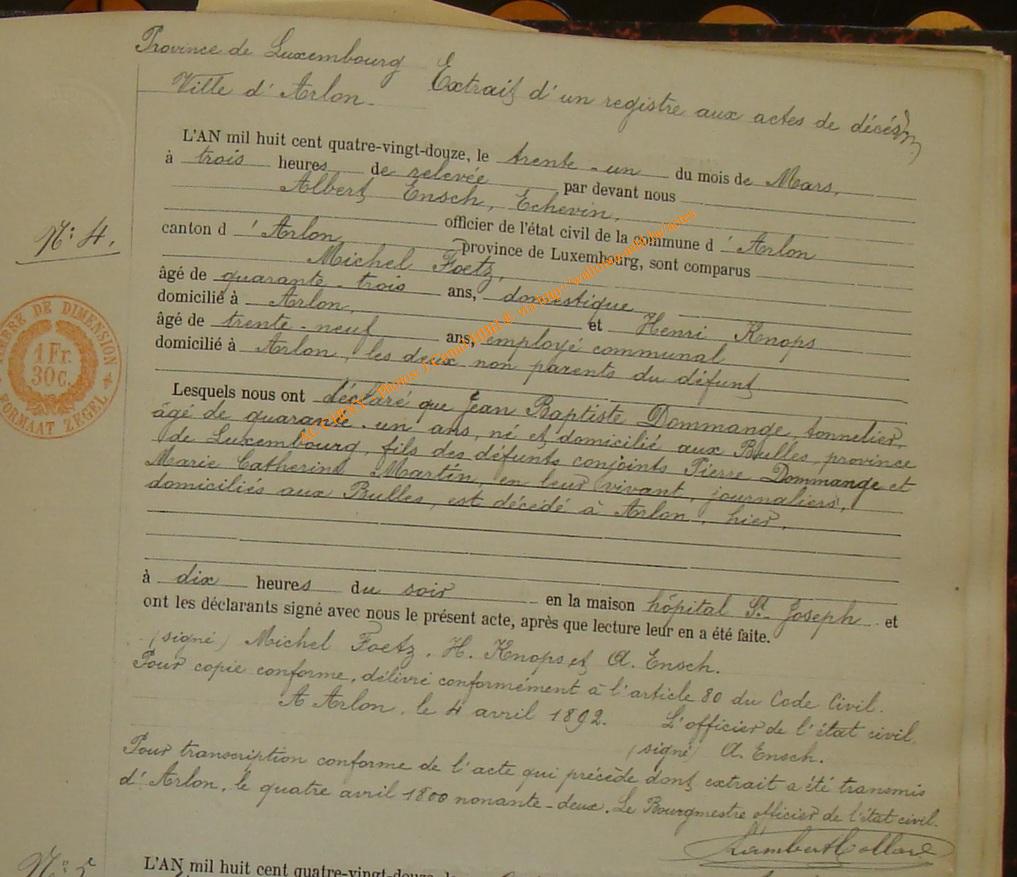 Province de Luxembourg
Ville d'Arlon.
Extrait d'un registre aux actes de décès
L'AN mil huit cent quatre-vingt-douze, le trente-un du mois de Mars,
à trois heures de relevée par devant nous
Albert Ensch, Echevin,
officier de l'état civil de la commune d'Arlon
canton d'Arlon province de Luxembourg, sont comparus
Michel Foetz,
âgé de quarante-trois ans, domestique
domicilié à Arlon, et Henri Knops
âgé de trente-neuf ans, employé communal
domicilié à Arlon, les deux non parents du défunt
Lesquels nous ont déclaré que Jean Baptiste Dommange, tonnelier,
âgé de quarante-un ans, né et domicilié aux Bulles, province
de Luxembourg, fils des défunts conjoints Pierre Dommange et
Marie Catherine Martin, en leur vivant, journaliers,
domiciliés aux Bulles, est décédé à Arlon, hier,
à dix heures du soir en la maison hôpital St. Joseph et
ont les déclarants signé avec nous le présent acte, après que lecture leur en a été faite.
(signé) Michel Foetz, H. Knops et A. Ensch.
Pour copie conforme, délivré conformément à l'article 80 du Code Civil.
A Arlon, le 4 avril 1892. L'officier de l'état civil,
(signé) A. Ensch.
Pour transcription conforme de l'acte qui précède dont extrait a été transmis
d'Arlon, le quatre avril 1800 nonante-deux. Le Bourgmestre officier de l'état civil.
Lambert Collard
N° 4.
TIMBRE DE DIMENSION
1 Fr.
30 c.
FORMAAT ZEGEL
N° 5
L'AN mil huit cent quatre-vingt-douze, le